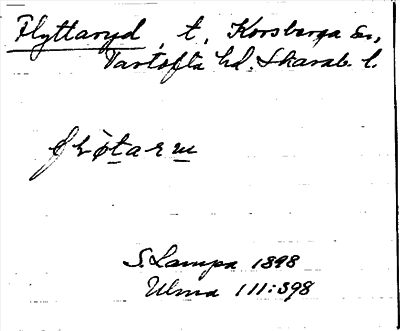 Flyttaryd, t, Korsberga Sn,
Vartofta hd, Skarab. l.
S. Lampa 1898
Ulma 111:398